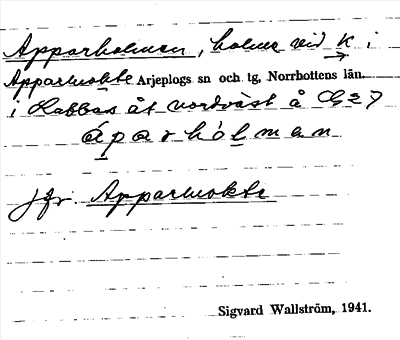 Apparholmen, holme vid K i
Apparmokte Arjeplogs sn och tg, Norrbottens län.
i Labbas åt nordväst å G27
áparhólman
jfr. Apparmokte
Sigvard Wallström, 1941.